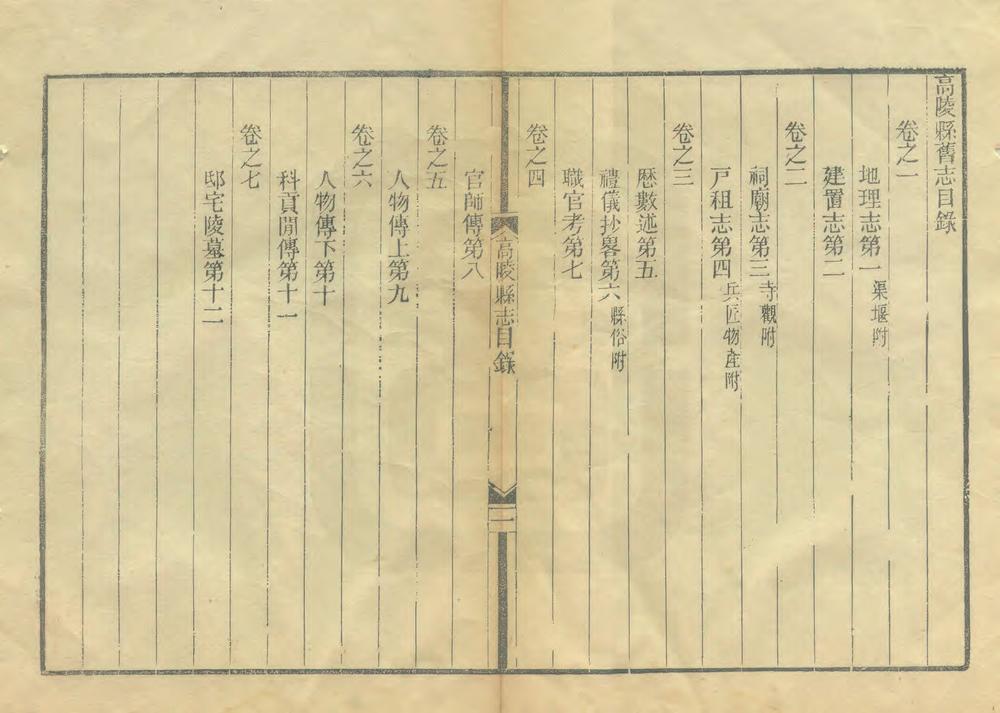 高陵縣舊志目錄
卷之一
地理志第一 渠堰附
建置志第二
卷之二
祠廟志第三 寺觀附
戸租志第四 兵匠物産附
卷之三
厯數述第五
禮儀抄畧第六 縣俗附
職官考第七
卷之四
高陵縣志目錄
一
官師傳第八
卷之五
人物傳上第九
卷之六
人物傳下第十
科貢閒傳第十一
卷之七
邸宅陵墓第十二